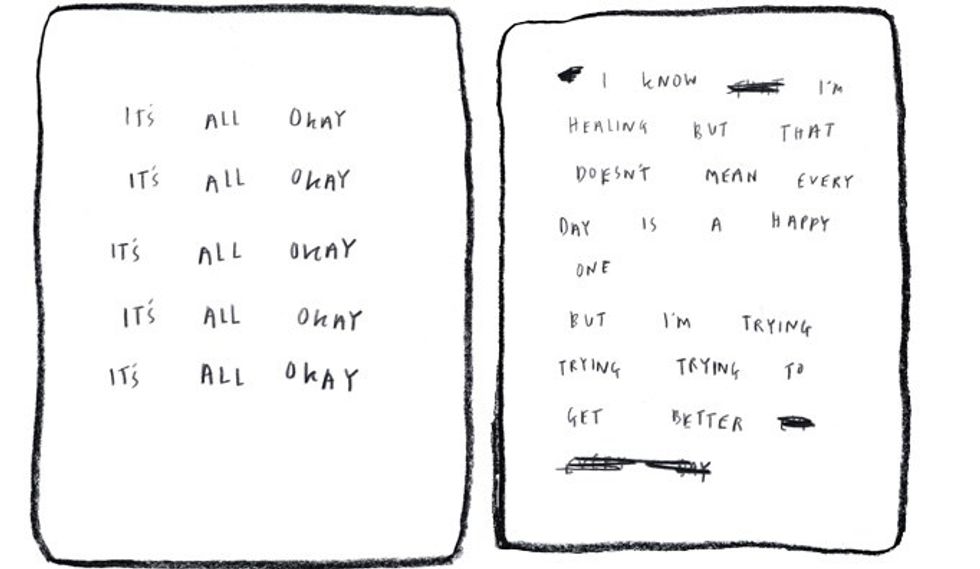 IT'S ALL OKAY
IT'S ALL OKAY
IT'S ALL OKAY
IT'S ALL OKAY
IT'S ALL OKAY
I KNOW I'M
HEALING BUT THAT
DOESN'T MEAN EVERY
DAY IS A HAPPY
ONE
BUT I'M TRYING
TRYING TRYING TO
GET BETTER
DAY